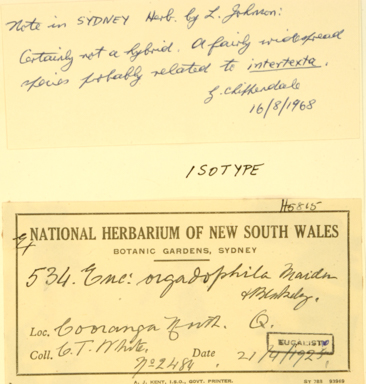 Note in SYDNEY Herb. by L. Johnson:
Certainly not a hybrid. A fairly widespread
species probably related to intertexta.
G. Chippendale
16/8/1968
ISOTYPE
H5815
Ex NATIONAL HERBARIUM OF NEW SOUTH WALES
BOTANIC GARDENS, SYDNEY
534. Euc: orgadophila Maiden
& Blakely.
Loc. Cooranga North. Q.
Coll. C. T. White Date 21/4/
No 2484
A. J. KENT, I.S.O., GOVT. PRINTER.